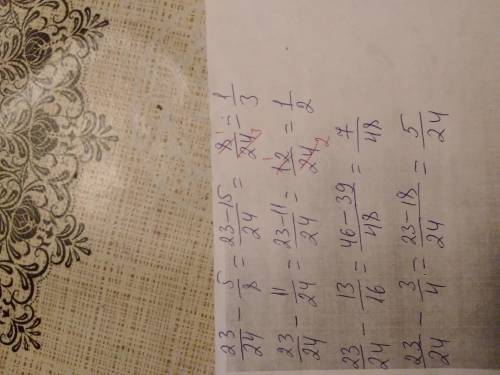 23/24 - 5/8 = 23-15/24 = 8/24 = 1/3
23/24 - 11/24 = 23-11/24 = 12/24 = 1/2
23/24 - 13/16 = 46-39/48 = 7/48
23/24 - 3/4 = 23-18/24 = 5/24